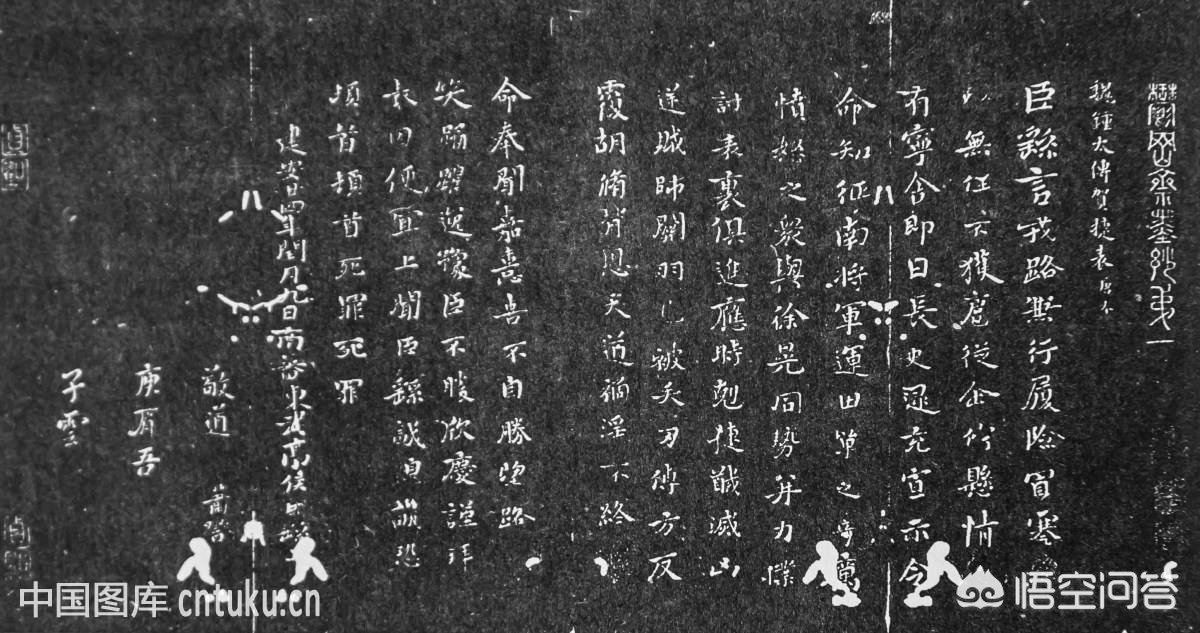 鬱岡齋墨妙弟一
魏鍾太傅賀捷表 唐本
臣繇言戎路兼行履險冒寒
無任不獲扈從企佇懸情
有寧舍即日長史逯充宣示令
命知征南將軍運田單之奇厲
憤怒之眾與徐晃同勢并力撲
討表裏俱進應時剋捷馘滅凶
逆賊帥關羽已被矢刃傅方反
覆胡脩背恩天道禍淫不終
命奉聞嘉憙喜不自勝望路
笑踊躍逸豫臣不勝欣慶謹拜
表因便宜上聞臣繇誠皇誠恐
頓首頓首死罪死罪
建安廿四年閏月九日南蕃東武亭侯臣繇
敬道 蕭啓
庾肩吾
子雲
中国图库 cntuku.cn
悟空问答